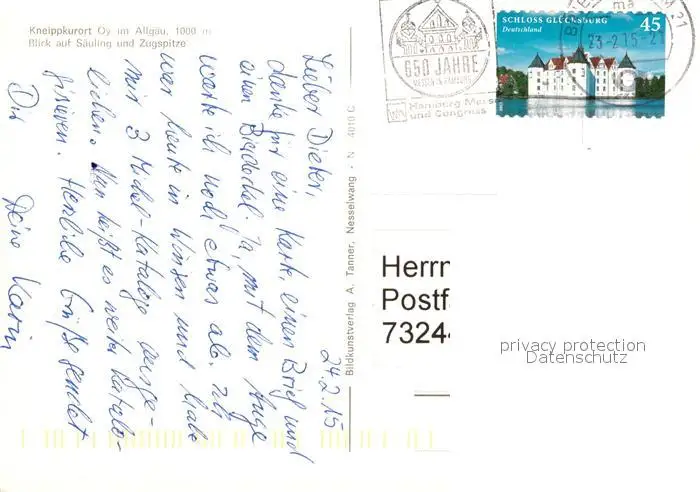 Kneippkurort Oy im Allgäu, 1000 m
Blick auf Säuling und Zugspitze
24.2.15
Lieber Dieter,
danke für eine Karte, einen Brief und
einen Ja, mit dem Auge
warte ich noch etwas ab. Ich
war heute in Winsen und habe
mir 3 Michel-Kataloge ausge-
liehen. Nun heißt es weiter katalo-
gisieren. Herzliche Grüße sendet
Dir Deine Karin
Bildkunstverlag A. Tanner, Nesselwang · N 4010 C
650 JAHRE
MESSEN IN HAMBURG
Hamburg Messe
und Congress
SCHLOSS GLÜCKSBURG
Deutschland
45
23-2.15-21
Herrn
Postf
73244
privacy protection
Datenschutz